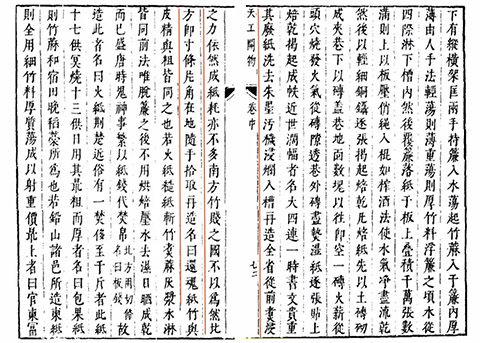 下有縱橫架匡兩手持簾入水蕩起竹麻入于簾內厚
薄由人手法輕蕩則薄重蕩則厚竹料浮簾之頃水從
四際淋下槽內然後覆簾落紙于板上疊積千萬張數
滿則上以板壓俏繩入棍如榨酒法使水氣淨盡流乾
然後以輕細銅鑷逐張揭起焙乾凡焙紙先以土磚砌
成夾巷下以磚蓋巷地面數塊以往即空一磚火薪從
頭穴燒發火氣從磚隙透巷外磚盡熱濕紙逐張貼上
焙乾揭起成帙近世闊幅者名大四連一時書文貴重
其廢紙洗去朱墨污穢浸爛入槽再造全省從前煮浸
天工開物 卷中 七二
之力依然成紙耗亦不多南方竹賤之國不以為然北
方即寸條片角在地隨手拾取再造名曰還魂紙竹與
皮精與粗皆同之也若火紙糙紙斬竹煮麻灰漿水淋
皆同前法唯脫簾之後不用烘焙壓水去濕日曬成乾
而已盛唐時鬼神事繁以紙錢代焚帛北方用切條名曰板錢故
造此者名曰火紙荊楚近俗有一焚侈至千斤者此紙
十七供冥燒十三供日用其最粗而厚者名曰包裹紙
則竹麻和宿田晚稻稿所為也若鉛山諸邑所造柬紙
則全用細竹料厚質蕩成以射重價最上者曰官柬富